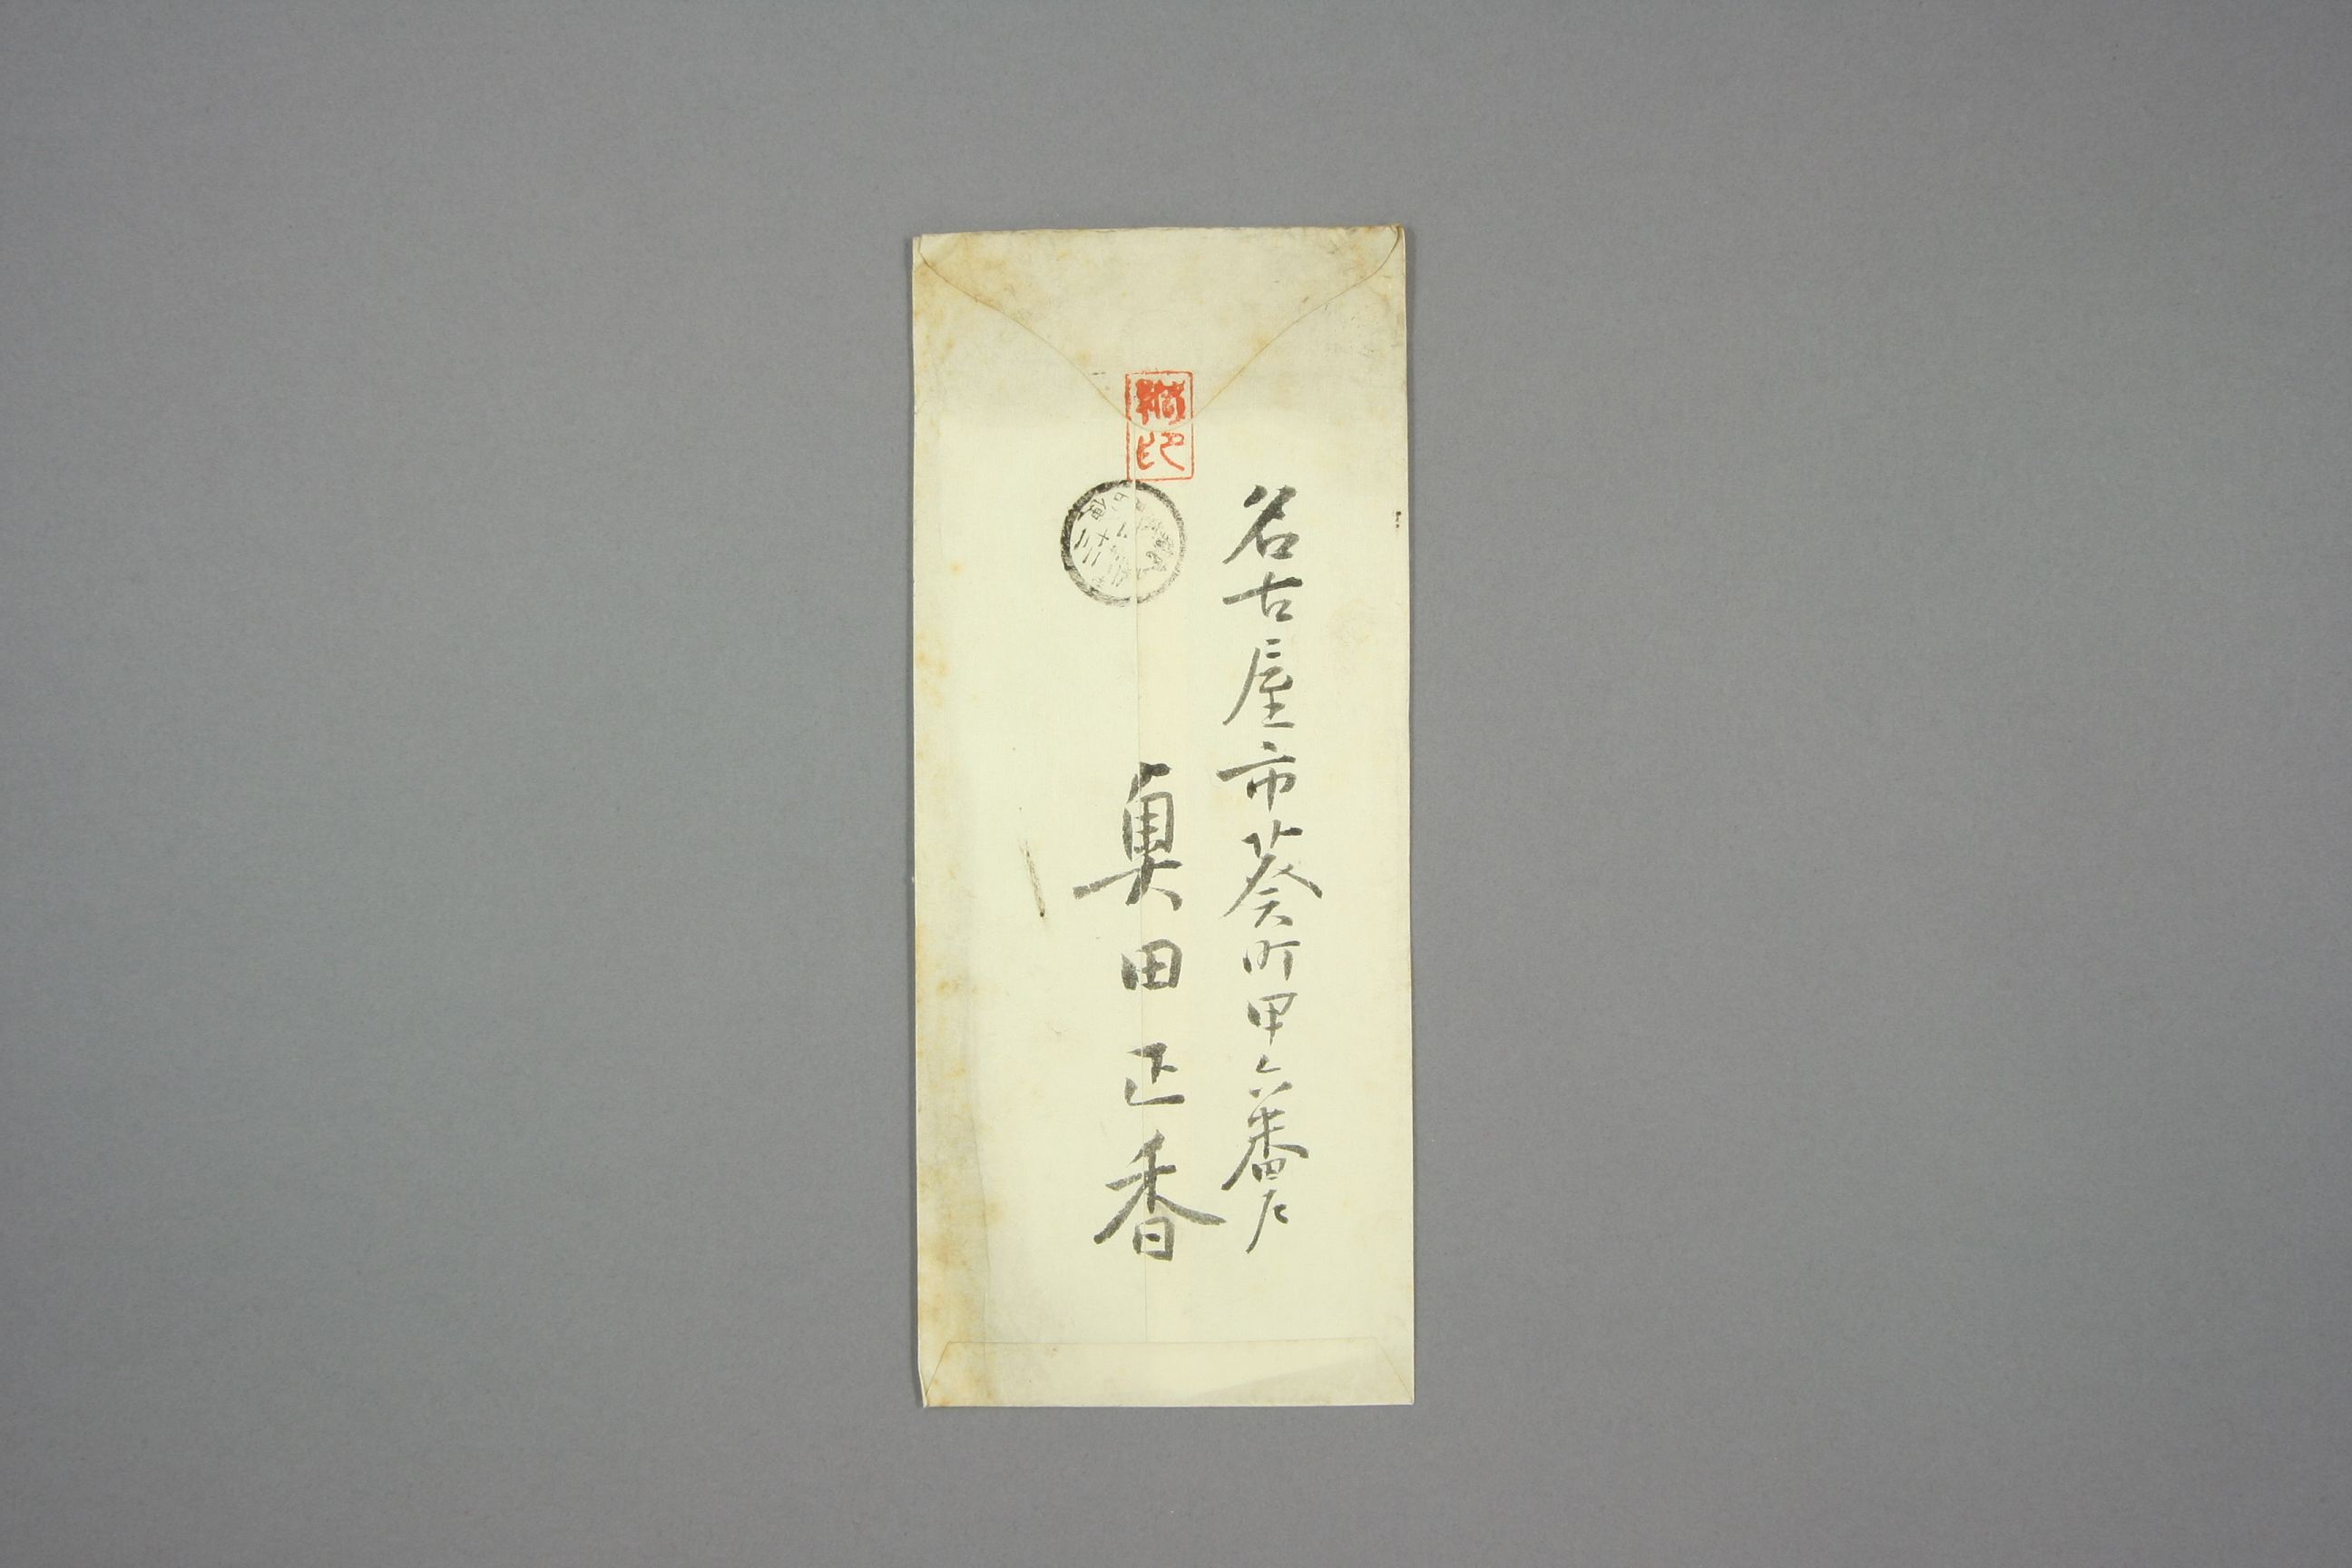 名古屋市葵町甲六番戸
奥田正香